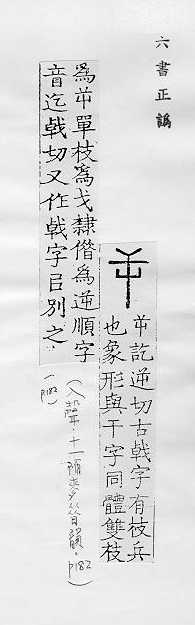 六書正譌
屰
屰訖逆切古戟字有枝兵
也象形與干字同體雙枝
爲屰單枝爲戈隸借爲逆順字
音迄戟切又作戟字㠯別之
(入聲·十一陌麥昔韻. p182)
(p182)